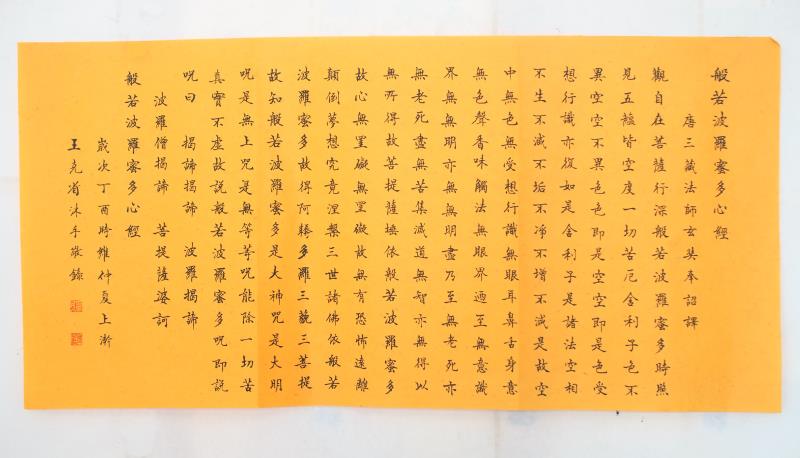 般若波羅蜜多心經
唐三藏法師玄奘奉詔譯
觀自在菩薩行深般若波羅蜜多時照
見五蘊皆空度一切苦厄舍利子色不
異空空不異色色即是空空即是色受
想行識亦復如是舍利子是諸法空相
不生不滅不垢不淨不增不減是故空
中無色無受想行識無眼耳鼻舌身意
無色聲香味觸法無眼界乃至無意識
界無無明亦無無明盡乃至無老死亦
無老死盡無苦集滅道無智亦無得以
無所得故菩提薩埵依般若波羅蜜多
故心無罣礙無罣礙故無有恐怖遠離
顛倒夢想究竟涅槃三世諸佛依般若
波羅蜜多故得阿耨多羅三藐三菩提
故知般若波羅蜜多是大神咒是大明
咒是無上咒是無等等咒能除一切苦
真實不虛故說般若波羅蜜多咒即說
咒曰 揭諦揭諦 波羅揭諦
波羅僧揭諦 菩提薩婆訶
般若波羅蜜多心經
歲次丁酉時維仲夏上澣
王克省沐手敬錄